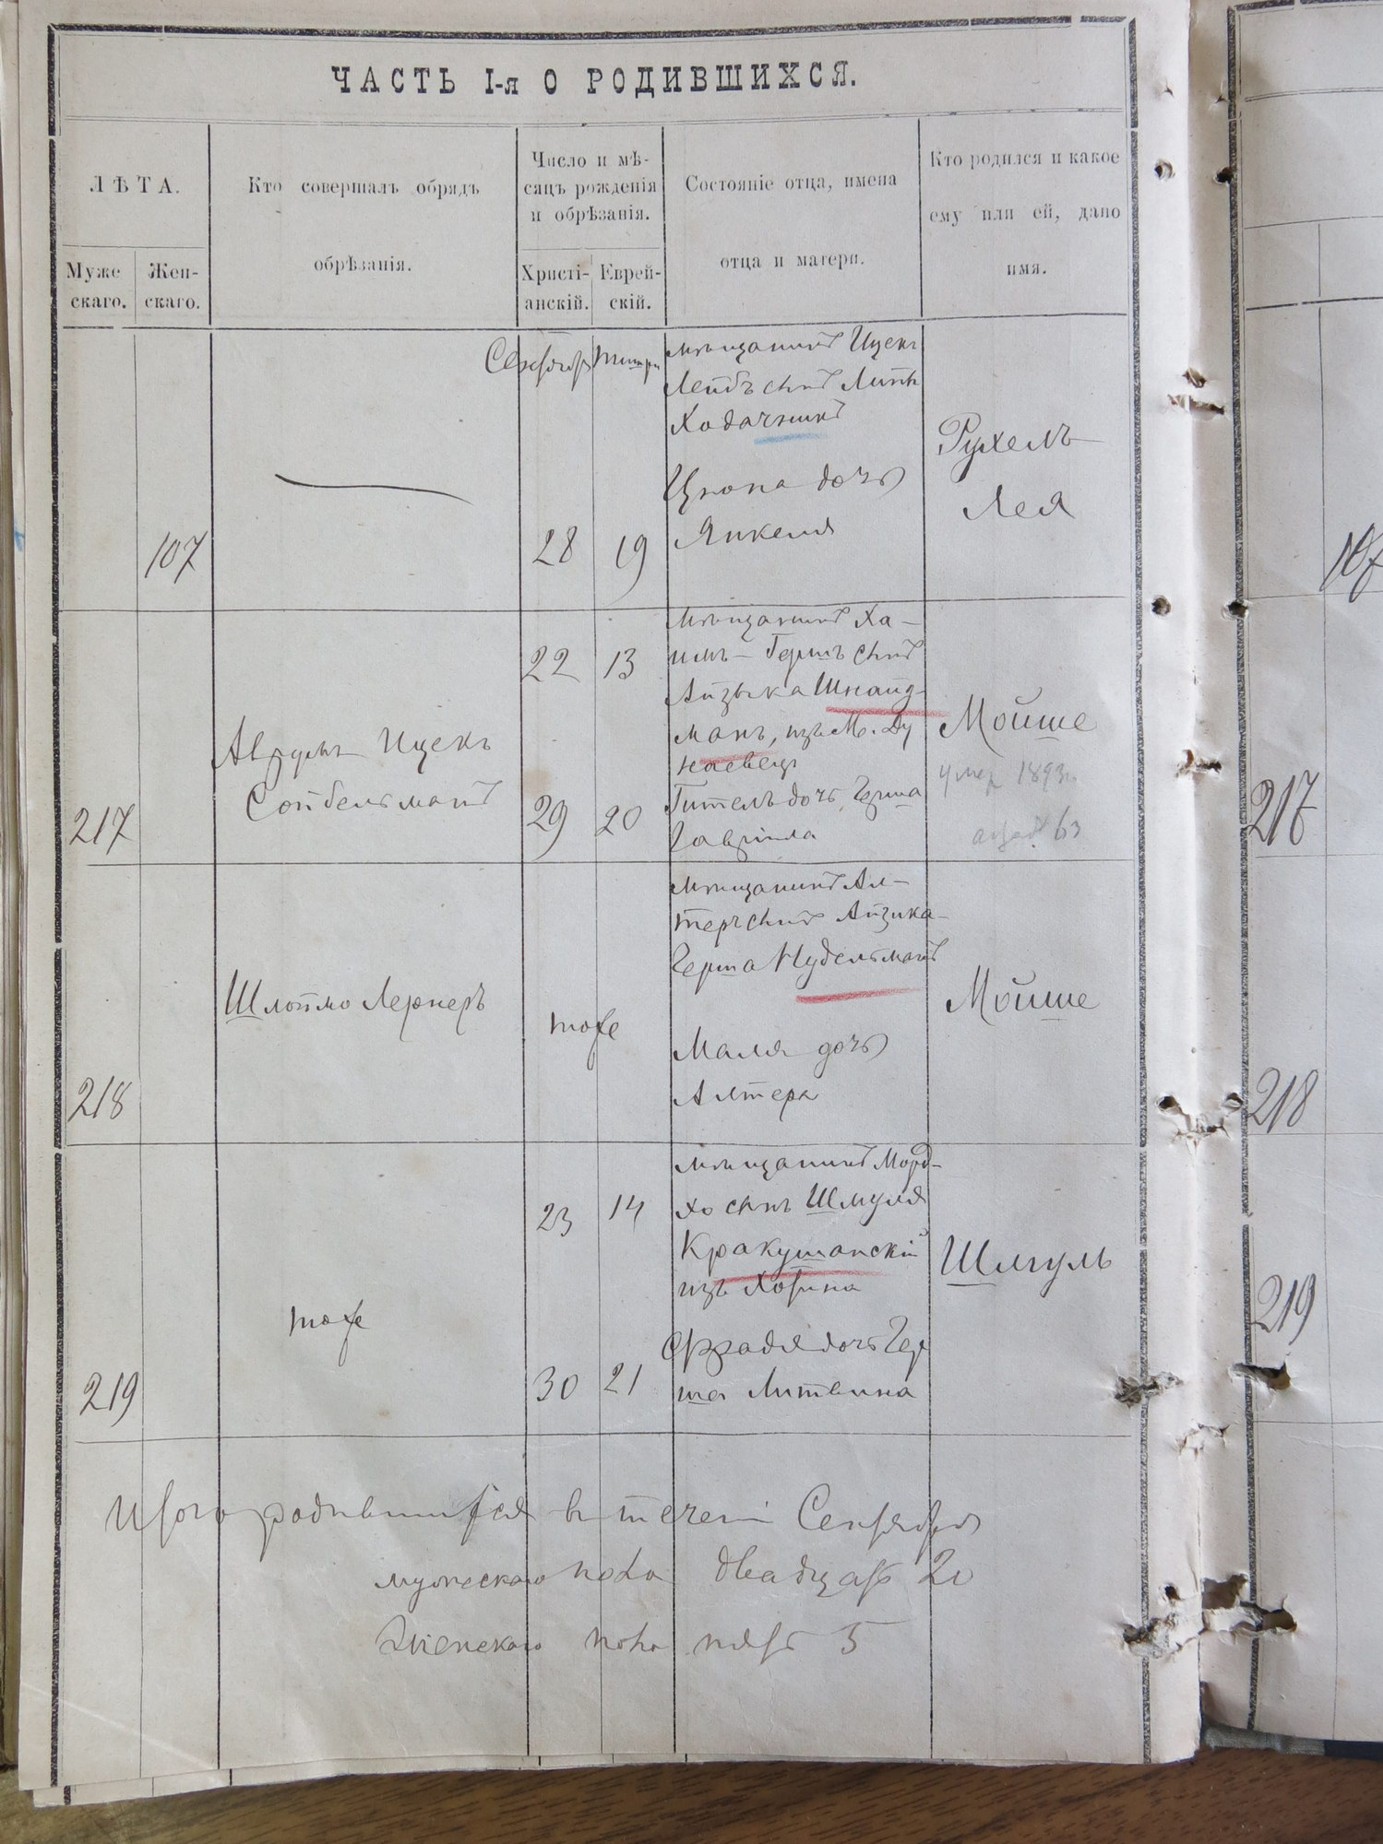 ЧАСТЬ I-я О РОДИВШИХСЯ.
ЛѢТА.
Муже
скаго.
Жен-
скаго.
Кто совершалъ обрядъ
обрѣзанія.
Число и мѣ-
сяцъ рожденія
и обрѣзанія.
Христі-
анскій.
Еврей-
скій.
Состояніе отца, имена
отца и матери.
Кто родился и какое
ему или ей, дано
имя.
107
Сентября
Тишри
28
19
мѣщанинъ Ицекъ
Лейбъ сынъ Липы
Ходачникъ
дочь
Янкеля
Рухель
Лея
107
217
Аврумъ Ицекъ
Сойбельманъ
22
13
29
20
мѣщанинъ Ха-
имъ-Гершъ сынъ
Айзыка Шнайд-
манъ, изъ М. Ду
наевецъ
Гитель дочь Герша
Гавриила
Мойше
умер 1893г.
63
217
218
Шлоймо Лернеръ
тоже
мѣщанинъ Ал-
теръ сынъ Айзика-
Герша Нудельманъ
Маля дочь
Алтера
Мойше
218
219
тоже
23
14
30
21
мѣщанинъ Морд-
хо сынъ Шмуля
Кракушанскій
изъ Хотина
Фрадя дочь Гер
ша Литвина
Шмуль
219
Итого родившихся въ теченіи Сентября
мужескаго пола двадцать 20
женскаго пола пять 5